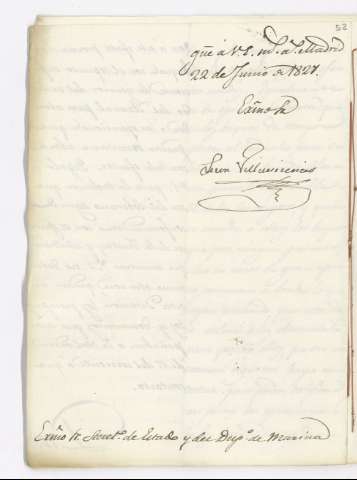 52
que á V.E. m.s a.s Madrid
22 de Junio de 1827.
Exmo Sr
Villavicencio
Exmo Sr. Secret.º de Estado y del Desp.º de Marina